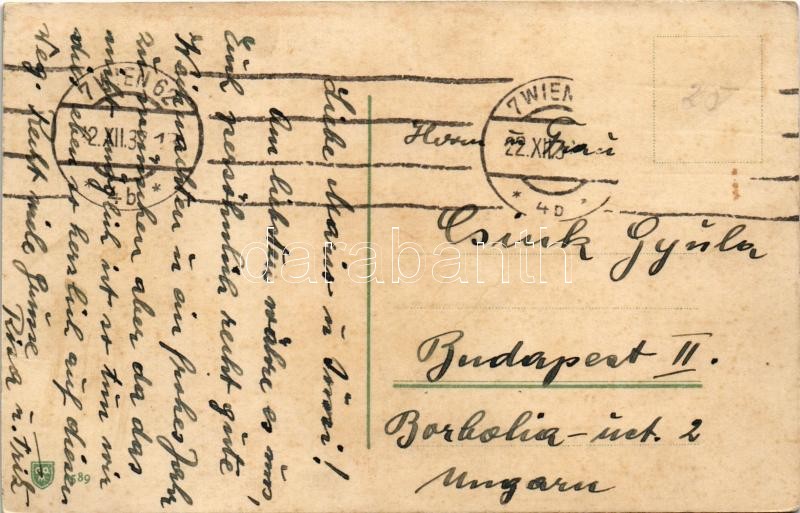 Liebe Maus u Imrei!
Am liebsten wäre es uns,
Euch persönlich recht gute
Weihnachten u ein frohes Jahr
zu wünschen aber da das
nicht möglich ist so tun wir
dies eben so herzlich auf diesem
Weg. Recht viele Grüsse
Risa u. Fritz
7 WIEN 62
22.XII.3
* 4b *
7 WIEN
22.XII.3
* 4b
25
Herrn u Frau
Csink Gyüla
Budapest II.
Borbolia-uct. 2
Ungarn
589
darabanth